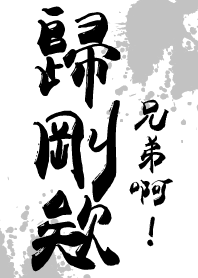 歸剛欸
兄弟啊！